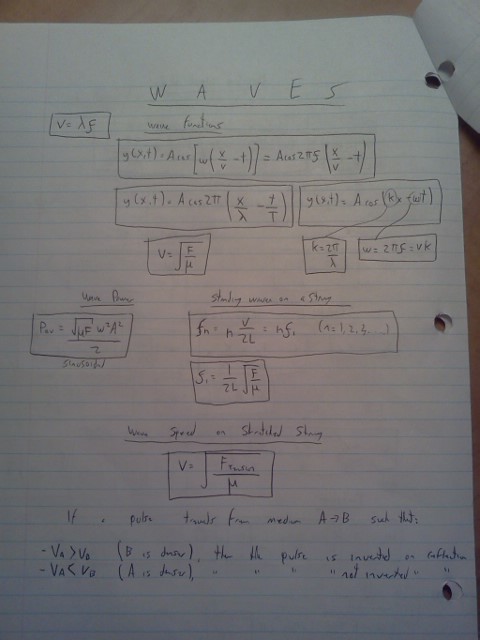 WAVES
v = λf
wave functions
y(x,t) = A cos[ω(x/v - t)] = A cos 2πf(x/v - t)
y(x,t) = A cos 2π(x/λ - t/T)
y(x,t) = A cos(kx ± ωt)
v = √(F/μ)
k = 2π/λ
ω = 2πf = vk
Wave Power
Standing waves on a String
Pav = √(μF) ω²A² / 2
fn = n v/2L = nf₁ (n = 1, 2, 3, ...)
sinusoidal
f₁ = 1/2L √(F/μ)
Wave Speed on Stretched String
v = √(F Tension/μ)
If a pulse travels from medium A → B such that:
- VA > VB (B is denser), then the pulse is inverted on reflection
- VA < VB (A is denser), " " " " not inverted " "